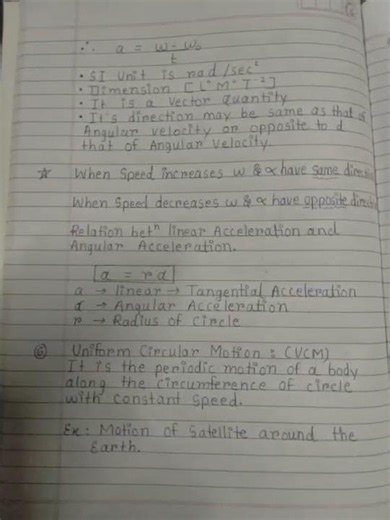 ∴ a = ω - ω₀ / t
• SI Unit is rad/sec²
• Dimension [L° M° T⁻²]
• It is a Vector Quantity
• It's direction may be same as that of
Angular velocity or opposite to d
that of Angular Velocity
☆ When Speed increases ω & α have same direc
When Speed decreases ω & α have opposite direc
Relation betⁿ linear Acceleration and
Angular Acceleration.
a = rα
a → linear → Tangential Acceleration
α → Angular Acceleration
r → Radius of Circle
⑥ Uniform Circular Motion : (UCM)
It is the periodic motion of a body
along the Circumference of circle
with Constant Speed.
Ex: Motion of Satellite around the
Earth.